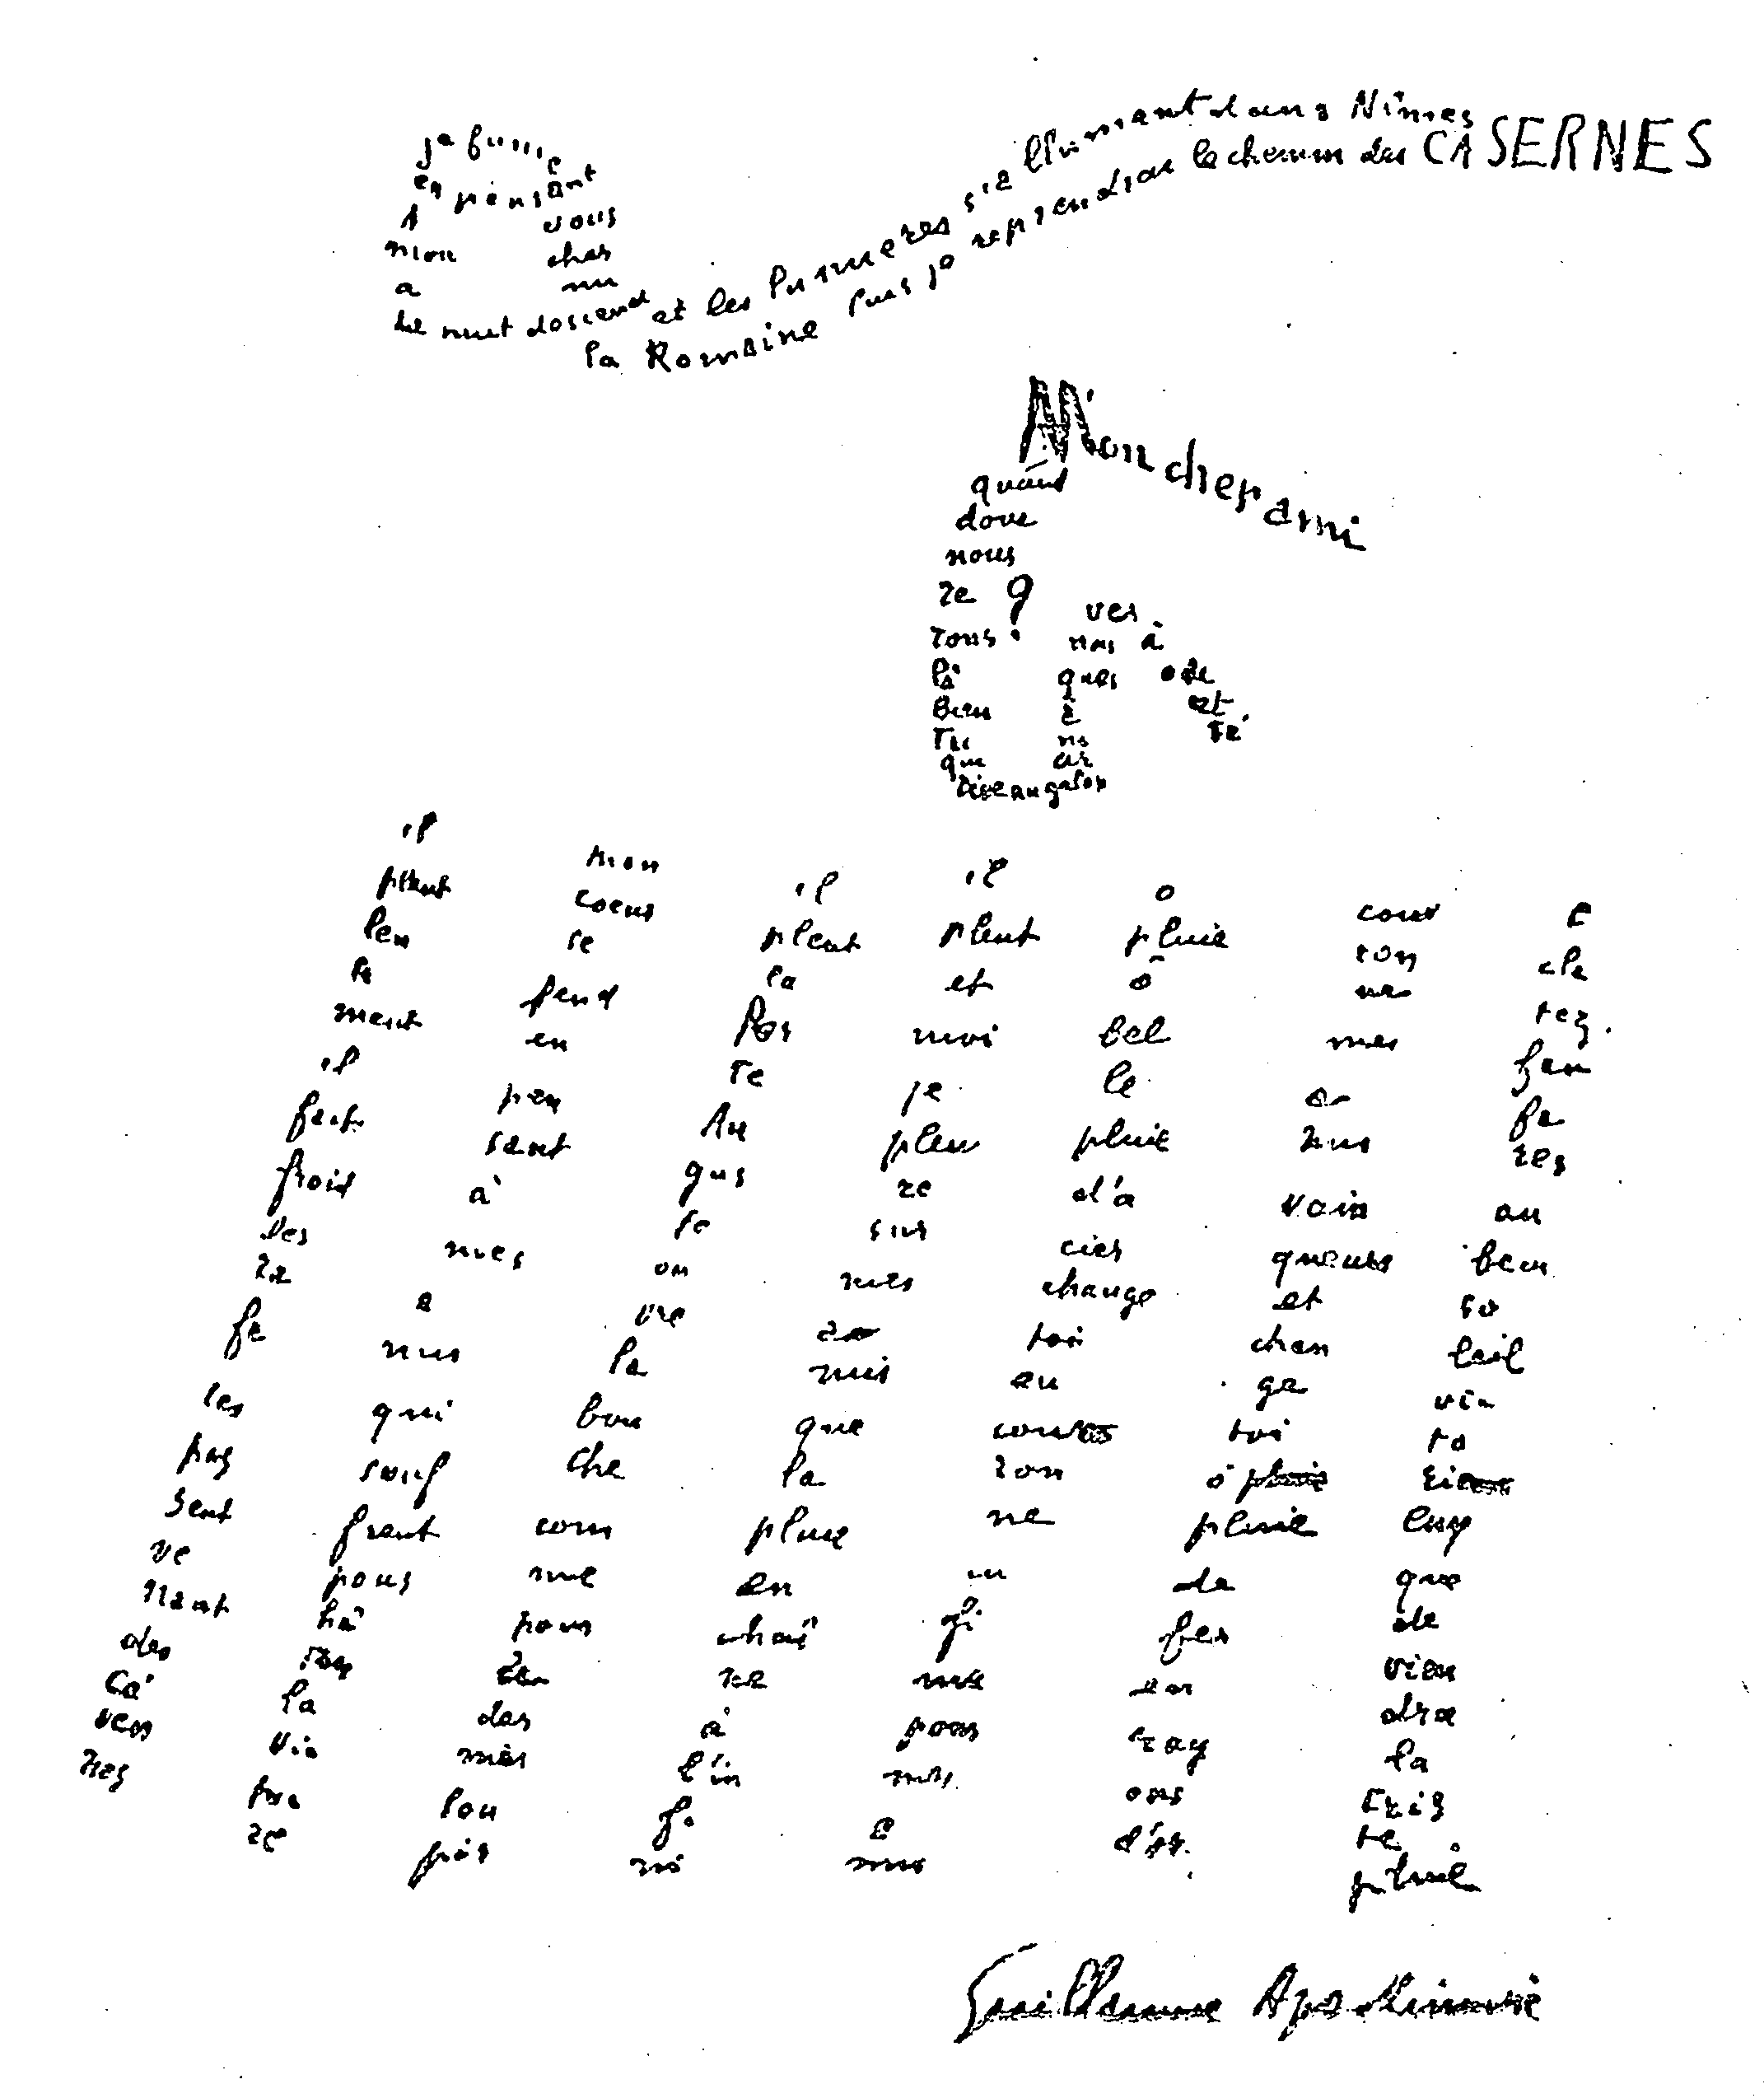 je fume
en pensant
à vous
mon cher
a mi
La nuit descend et les lumières s'allumant dans Nîmes
la Romaine puis je reprendrai le chemin des CASERNES
Mon cher ami
quand
donc
nous
re ? ver
rons nos à
là ques ode
Bien è et
Tu ni
que ar
dire au galop
il pleut len te ment il fait froid les ra fa les pas sent ve nant des Cé ven nes
mon coeur se fend en pen sant à mes a mis qui souf frent pour hâ ter la vic toi re
il pleut la Por te Au gus te ou vre la bou che com me pour
il pleut et moi je pleu re sur mes a mis que la pluie en chaî ne à l'in fi ni
ô pluie ô bel le pluie d'a cier change toi en cou ron ne in fi me pour nos e nmis
cour ron ne mes a mis vain queurs et chan ge toi ô pluie de fer en ray ons d'or
E cla tez fan fa res au beau so leil vic to rieux que de vien dra la tris te pluie
Guillaume Apollinaire